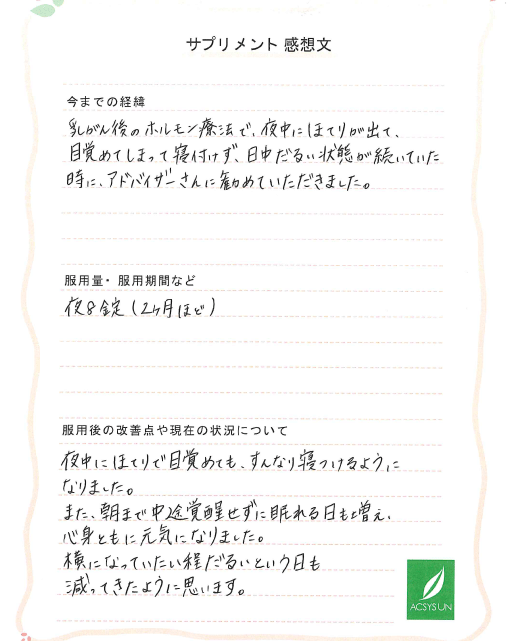 サプリメント 感想文
今までの経緯
乳がん後のホルモン療法で、夜中にほてりが出て、
目覚めてしまって寝付けず、日中だるい状態が続いていた
時に、アドバイザーさんに勧めていただきました。
服用量・服用期間など
夜8錠(2ヶ月ほど)
服用後の改善点や現在の状況について
夜中にほてりで目覚めても、すんなり寝つけるように
なりました。
また、朝まで中途覚醒せずに眠れる日も増え、
心身ともに元気になりました。
横になっていたい程だるいという日も
減ってきたように思います。
ACSYSUN